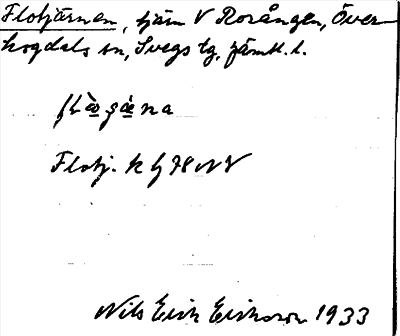 Flotjärnen, tjärn V Rorången, Över-
hogdals sn, Svegs tg, Jämtl. l.
Flotj. k bj 78 NV
Nils Erik Eriksson 1933